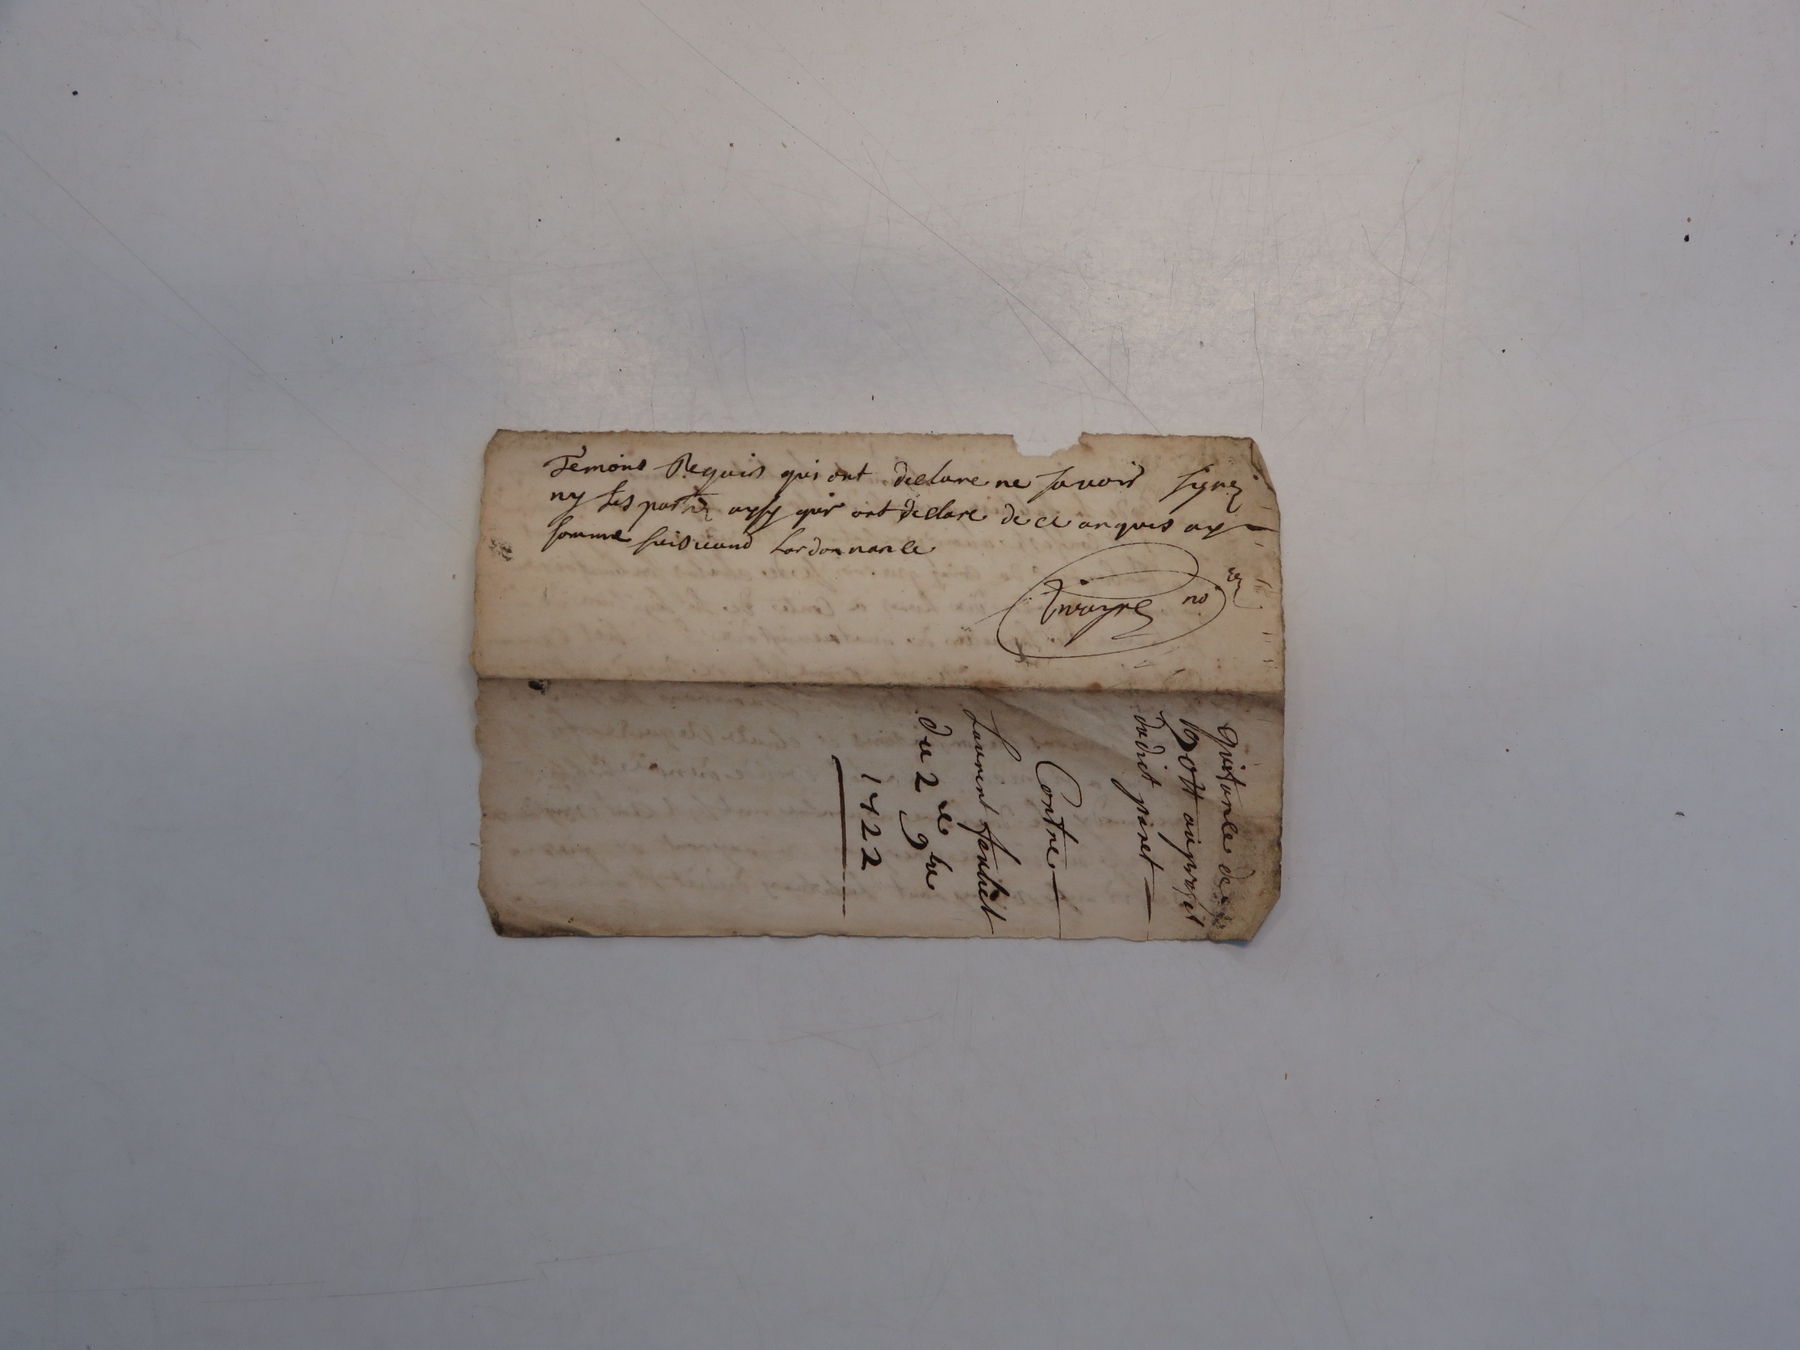 Temoins Requis qui ont declare ne savoir signer
ny les parties aysy qui ont declare de ce enquis ay
somme suivand lordonnance
no
quittance de
au profit
dudict pinet
Contre
Laurent
du 2e 9bre
1722